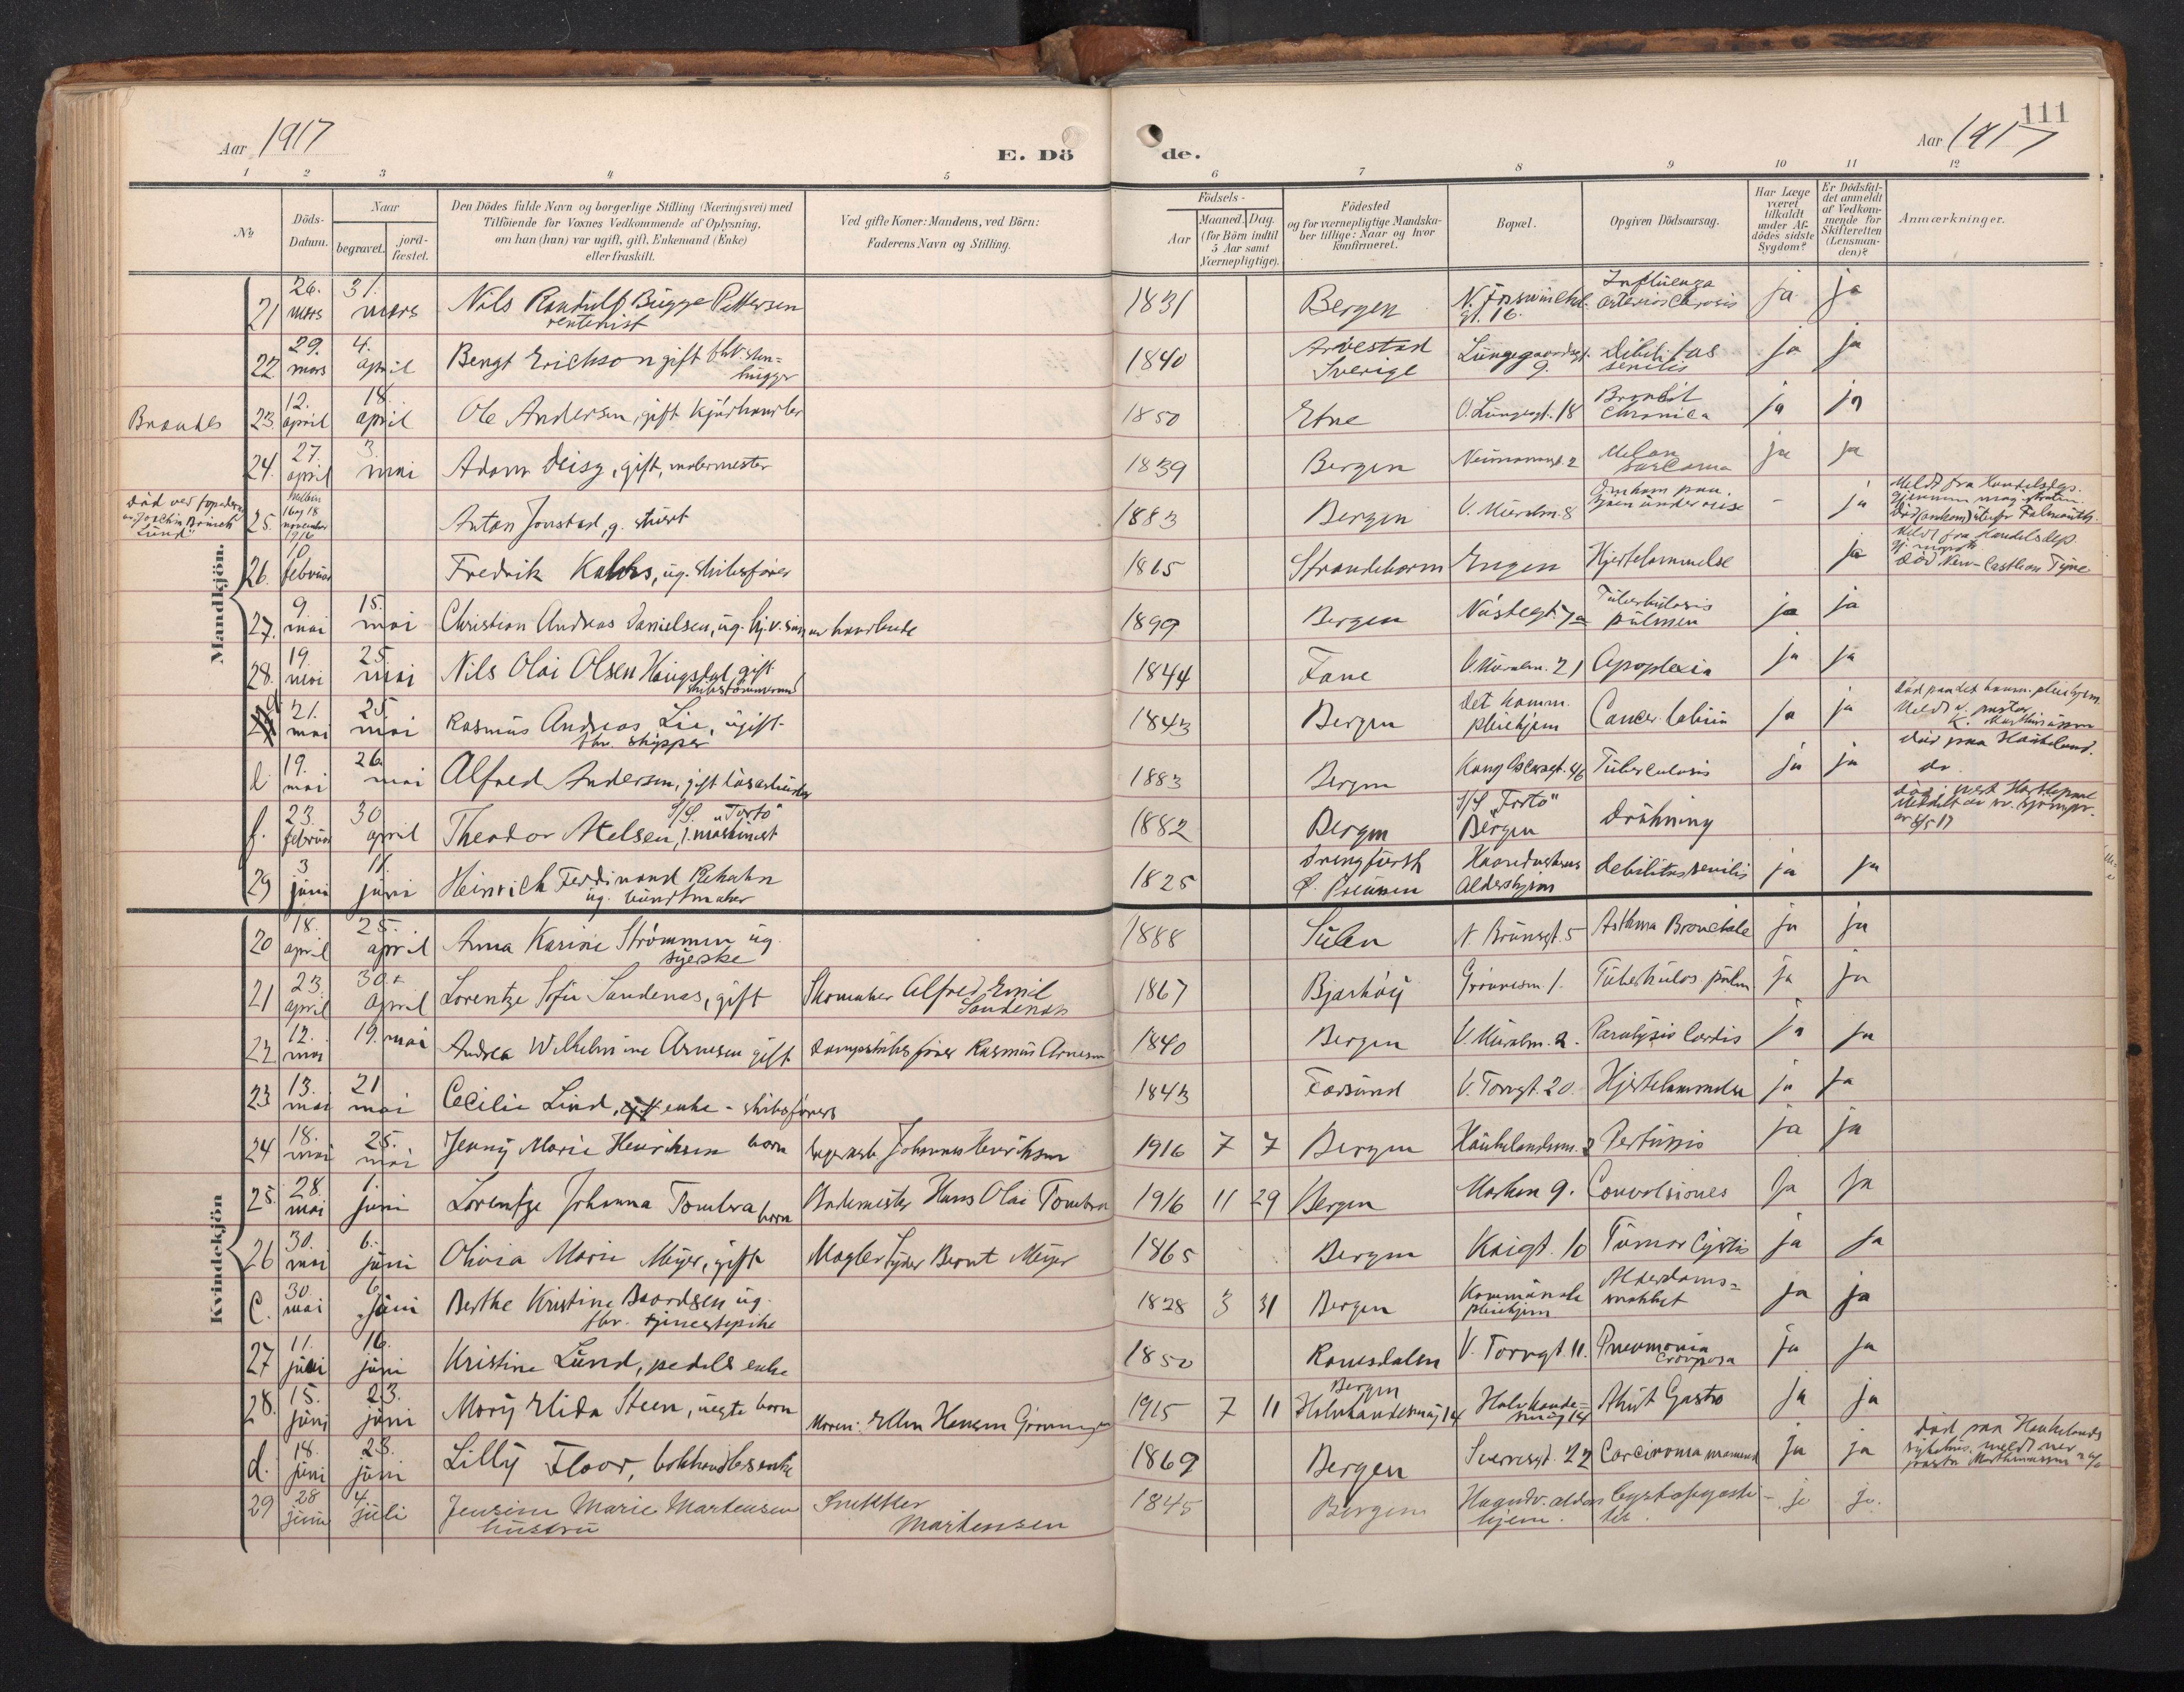 Aar 1917
E. Dö
de.
111
Aar 1917
1 2 3 4 5 6 7 8 9 10 11 12
No
Döds-Datum.
Naar
begravet.
jord-fæstet.
Den Dödes fulde Navn og borgerlige Stilling (Næringsvei) med
Tilföiende for Voxnes Vedkommende af Oplysning,
om han (hun) var ugift, gift, Enkemand (Enke)
eller fraskilt.
Ved gifte Koner: Mandens, ved Börn:
Faderens Navn og Stilling.
Födsels-
Aar
Maaned. Dag.
(for Börn indtil
5 Aar samt
Værnepligtige).
Födested
og for værnepligtige Mandska-
ber tillige: Naar og hvor
konfirmeret.
Bopæl.
Opgiven Dödsaarsag.
Har Læge
været
tilkaldt
under Af-
dödes sidste
Sygdom?
Er Dödsfal-
det anmeldt
af Vedkom-
mende for
Skifteretten
(Lensman-
den)?
Anmærkninger.
Mandkjön.
21 26. mars 31. mars Nils Randulf Bugge Pettersen rentenist 1831 Bergen gt. 16. Influenza ja ja
22 29. mars 4. april Bengt Erichson gift fhv. sten=hugger 1840 Sverige Lungegaardsgt. 9. Debilitas senilis ja ja
23 12. april 18. april Ole Andersen, gift kjødhandler 1850 Etne O. Lungegt. 18 Chronica ja ja
24. 27. april 3. mai Adam Deisz, gift, malermester 1839 Bergen 2 Melan sarcoma ja ja
25. mellem 16 og 18 november 1916 Anton Jonstad, g. stuert 1883 Bergen V. Muralm. 8 Omkom paa reise - ja
Meldt fra Handelsdep.
26. 10 februar Fredrik ug. skibsfører 1865 Strandebarm Engen Hjertelammelse ja
Meldt fra Handelsdep.
død New-Castle on Tyne
27. 9. mai 15. mai Christian Andreas Danielsen, ug. 1899 Bergen Nøstegt. 7a Tuberkulosis pulmon ja ja
28. 19. mai 25. mai Nils Olai Olsen Haugsdal, gift 1844 Fane V. Muralm. 21 Apoplexia ja ja
21. mai 25. mai Rasmus Andreas Lie, ugift fhv. skipper 1843 Bergen Det komm. pleiehjem Cancer ja ja
død paa det komm. pleiehjem
Meldt v. pastor
19. mai 26. mai Alfred Andersen, gift løsarbeider 1883 Bergen Kong Oscarsgt. 46 Tuberculosis ja ja
død paa Haukeland.
do
f. 23. februar 30 april Theodor Nielsen, 1. maskinist S/S. "Torto" 1882 Bergen S/S "Torto" Bergen Drukning
29 3 juni 11. juni Heinrich Ferdinand Rehahn ug. buntmaker 1825 Haandverkernes Aldershjem debilitas senilis ja ja
Kvindekjön
20 18. april 25. april Anna Karine Strømmen ug. syerske 1888 Sulen N. Brunsgt. 5 Asthma Bronchiale ja ja
21 23. april 30. april Lorentze Sofie Sandenas, gift Skomaker Alfred Emil Sandenas 1867 Bjarkøy Grønnesm 1. Tuberkulos pulm ja ja
22 12. mai 19. mai Andrea Wilhelmine Arnesen gift Dampskibsfører Rasmus Arnesen 1840 Bergen V. Muralm. 2. Paralysis Cordis ja ja
23 13. mai 21 mai Cecilie Lind, enke - skibsførers 1843 Farsund V. Torvgt. 20. Hjertelammelse ja ja
24 18. mai 25. mai Jenny Marie Henriksen barn Johannes Henriksen 1916 7 7 Bergen Haukelandsm. 2 Pertussis ja ja
25. 28. mai 1. juni Lorentze Johanna Tombra barn Bademester Hans Olai Tombra 1916 11 29 Bergen Marken 9. Convulsiones ja ja
26 30. mai 6. juni Olivia Marie Meyer, gift Mægler Lyder Bernt Meyer 1865 Bergen Kaigt. 10 Tumor Cystis ja ja
c. 30. mai 6. juni Berthe Kristine Baardsen ug. fhv. tjenestepike 1828 3 31 Bergen Kommunale pleiehjem Alderdoms=svakhet ja ja
27 11. juni 16. juni Kristine Lund, pedels enke 1850 Romsdalen V. Torvgt. 11. Pneumonia Crouposa ja ja
28. 15. juni 23. juni Mary Elida Steen, uegte barn Moren: Ellen Hansen 1915 7 11 Bergen Halvkandesmug 14 Halvkande=smug 14 Akut Gastro ja ja
d. 18. juni 23. juni Lilly Floor, bokhandlers enke 1869 Bergen Sverresgt. 22 Carcinoma mamma ja ja
død paa Haukelands
sykehus. meldt ved
29 28 juni 4. juli Jensine Marie Martensen hustru Snekker Martensen 1845 Bergen Haandv. alders hjem. - ja ja.